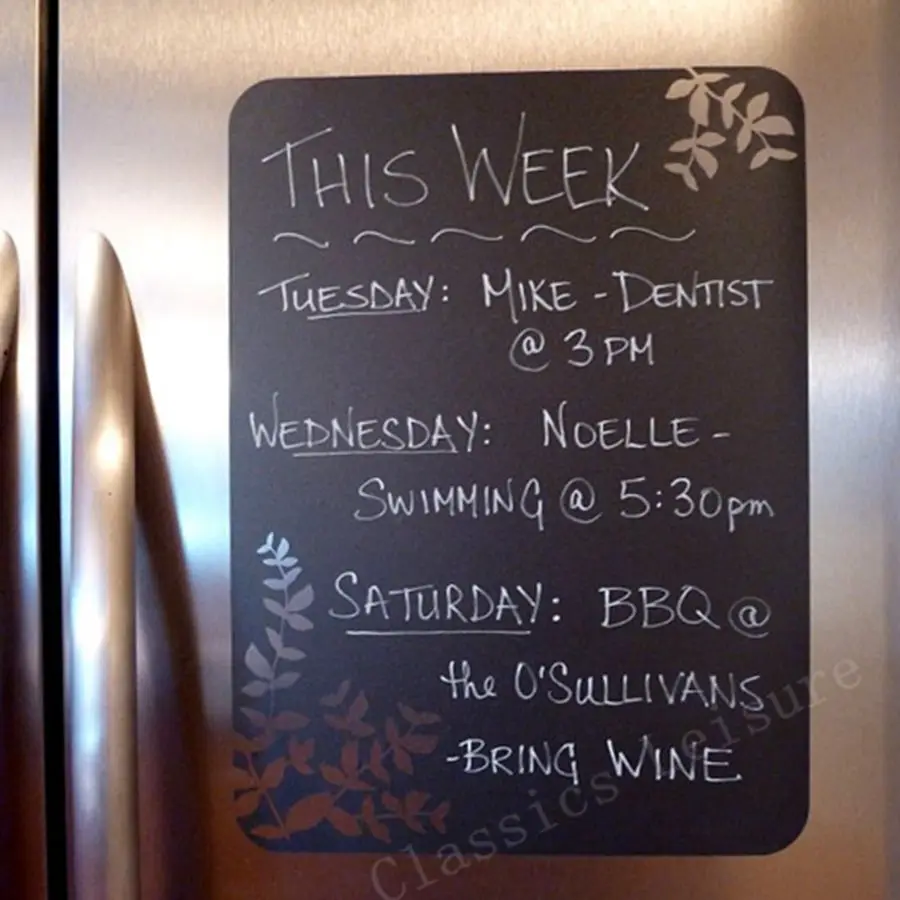 THIS WEEK
TUESDAY: MIKE - DENTIST
@ 3 PM
WEDNESDAY: NOELLE -
SWIMMING @ 5:30pm
SATURDAY: BBQ @
the O'SULLIVANS
-BRING WINE
Classics Leisure